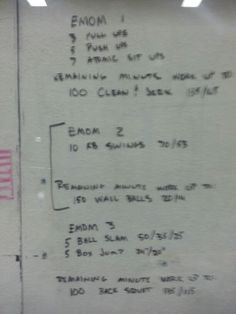 EMOM 1
3 PULL UPS
5 PUSH UPS
7 ATOMIC SIT UPS
REMAINING MINUTE WORK UP TO:
100 CLEAN & JERK 135/65
EMOM 2
10 KB SWINGS 70/53
REMAINING MINUTE WORK UP TO:
150 WALL BALLS 20/14
EMOM 3
5 BALL SLAM 50/35/25
5 BOX JUMP 24"/20"
REMAINING MINUTE WORK UP TO:
100 BACK SQUAT